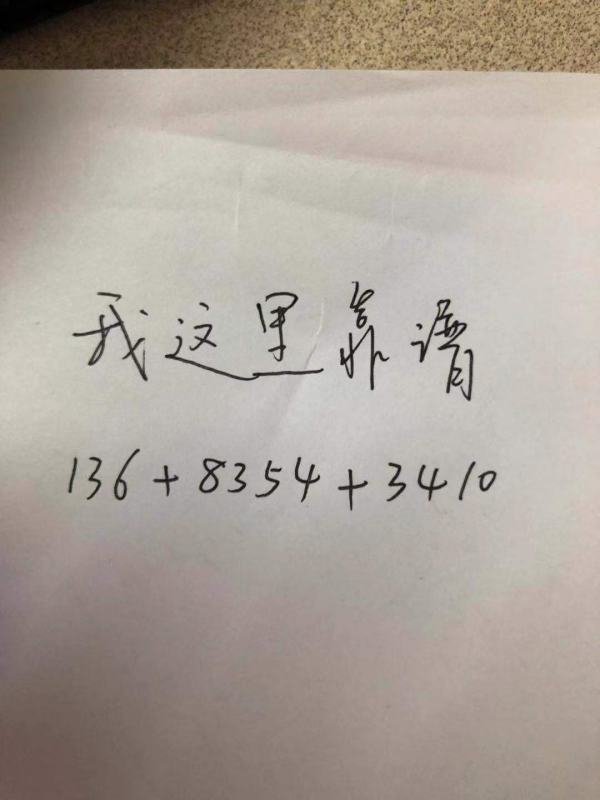 我这里靠谱
136+8354+3410